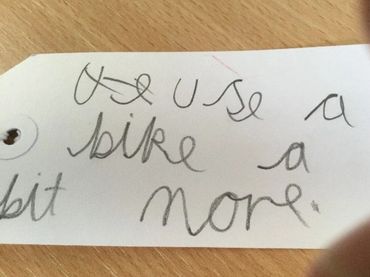 use a
bike a
bit more.